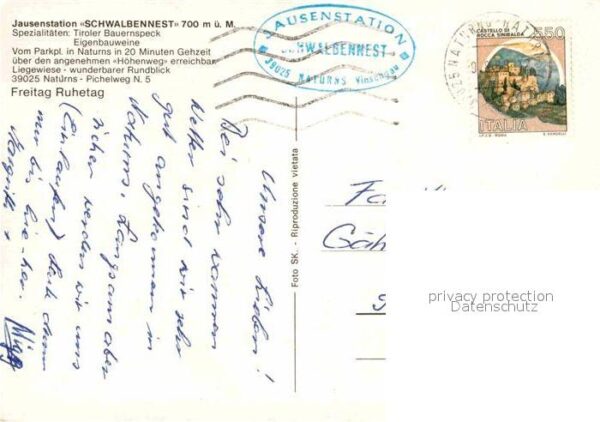 Jausenstation «SCHWALBENNEST» 700 m ü. M.
Spezialitäten: Tiroler Bauernspeck
Eigenbauweine
Vom Parkpl. in Naturns in 20 Minuten Gehzeit
über den angenehmen «Höhenweg» erreichbar
Liegewiese - wunderbarer Rundblick
39025 Naturns - Pichelweg N. 5
Freitag Ruhetag
JAUSENSTATION
SCHWALBENNEST
39025 NATURNS Vinschgau
550
CASTELLO DI
ROCCA SINIBALDA
ITALIA
Unsere Lieben!
Bei sehr warmen
Wetter sind wir sehr
gut angekommen in
Naturns. Langsam aber
sicher werden wir uns
(Einlaufen) doch
nur bis hier-her.
Foto SK. - Riproduzione vietata
privacy protection
Datenschutz